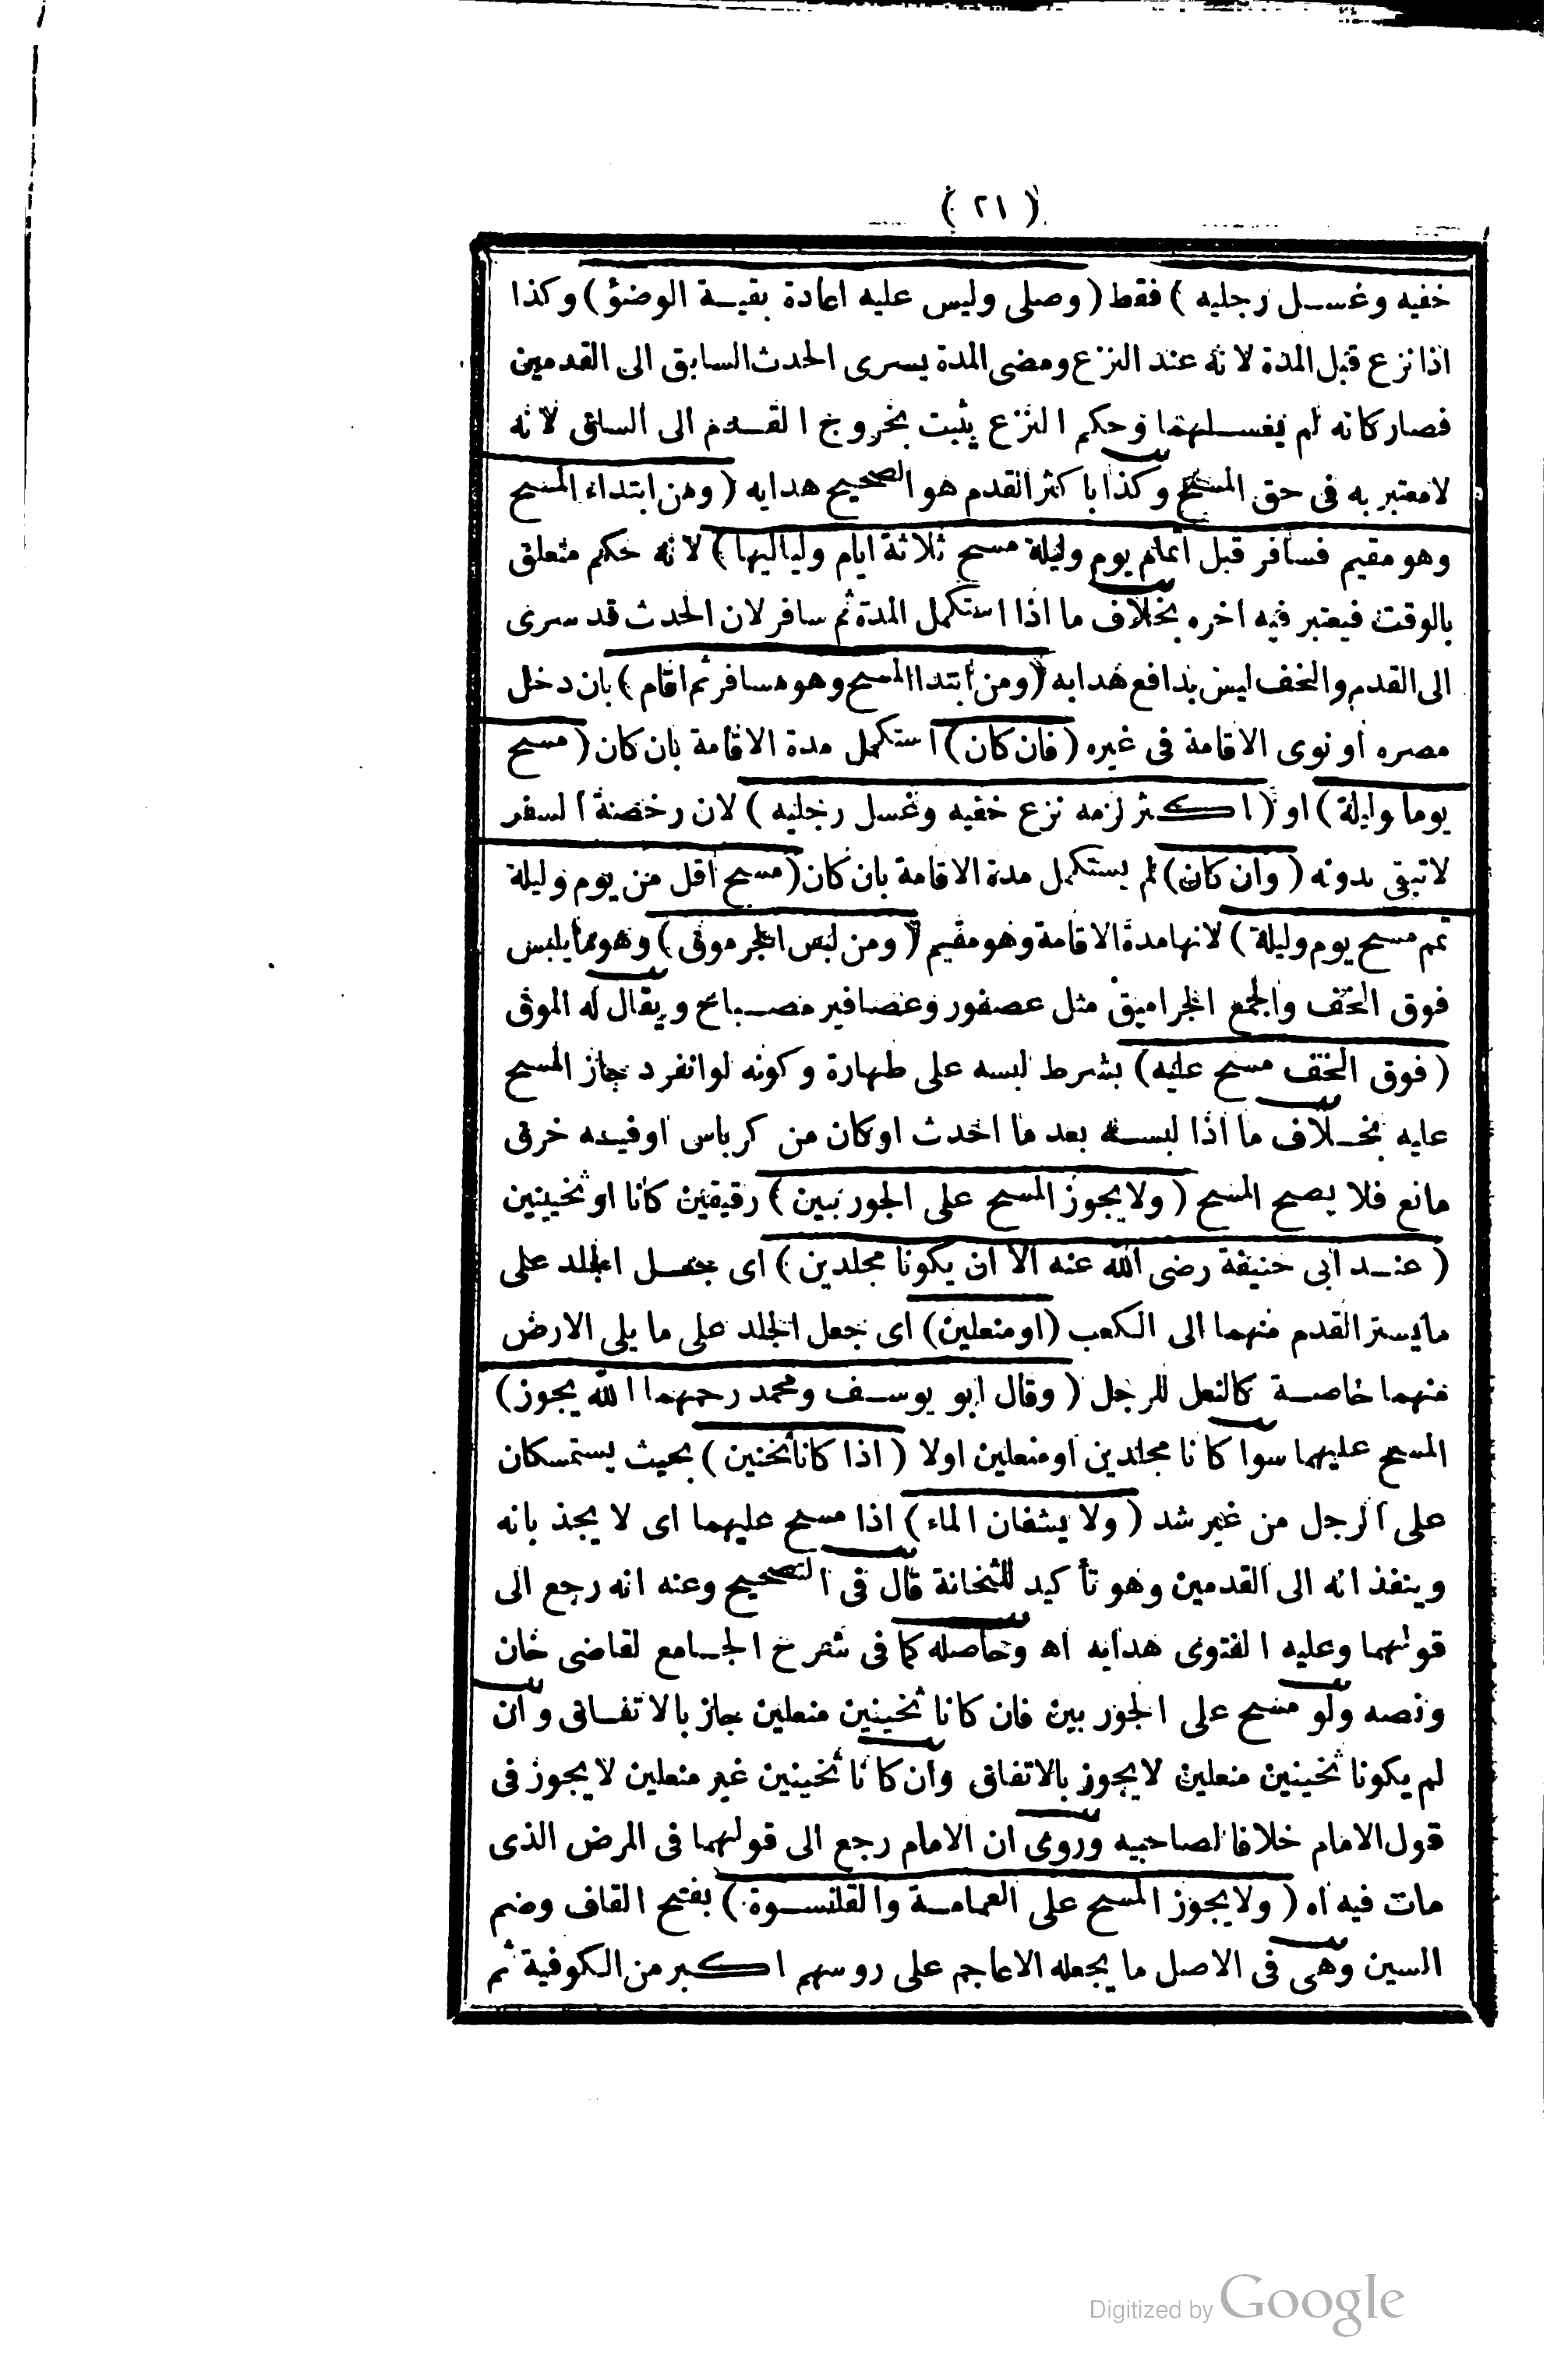 ( ٢١ )
خفيه وغسل رجليه ) فقط ( وصلى وليس عليه اعادة بقية الوضؤ ) وكذا
اذا نزع قبل المدة لانه عند النزع ومضى المدة يسرى الحدث السابق الى القدمين
فصار كانه لم يغسلهما وحكم النزع يثبت بخروج القدم الى الساق لانه
لا معتبر به فى حق المسح وكذا باكثر القدم هو الصحيح هدايه ( ومن ابتداء المسح
وهو مقيم فسافر قبل اتمام يوم وليلة مسح ثلاثة ايام ولياليها ) لانه حكم متعلق
بالوقت فيعتبر فيه اخره بخلاف ما اذا استكمل المدة ثم سافر لان الحدث قد سرى
الى القدم والخف ليس بدافع هدايه ( ومن ابتدا المسح وهو مسافر ثم اقام ) بان دخل
مصره او نوى الاقامة فى غيره ( فان كان ) استكمل مدة الاقامة بان كان ( مسح
يوما وليلة ) او ( اكثر لزمه نزع خفيه وغسل رجليه ) لان رخصة السفر
لا تبقى بدونه ( وان كان ) لم يستكمل مدة الاقامة بان كان ( مسح اقل من يوم وليلة
تمم مسح يوم وليلة ) لانها مدة الاقامة وهو مقيم ( ومن لبس الجرموق ) وهو ما يلبس
فوق الخف والجمع الجراميق مثل عصفور وعصافير مصباح ويقال له الموق
( فوق الخف مسح عليه ) بشرط لبسه على طهارة وكونه لو انفرد جاز المسح
عليه بخلاف ما اذا لبسه بعد ما احدث او كان من كرباس او فيه خرق
مانع فلا يصح المسح ( ولا يجوز المسح على الجوربين ) رقيقين كانا او ثخينين
( عند ابى حنيفة رضى الله عنه الا ان يكونا مجلدين ) اى جعل الجلد على
ما يستر القدم منهما الى الكعب ( او منعلين ) اى جعل الجلد على ما يلى الارض
منهما خاصة كالنعل للرجل ( وقال ابو يوسف ومحمد رحمهما الله يجوز )
المسح عليهما سوا كانا مجلدين او منعلين اولا ( اذا كانا ثخنين ) بحيث يستمسكان
على الرجل من غير شد ( ولا يشفان الماء ) اذا مسح عليهما اى لا يجذبانه
وينفذانه الى القدمين وهو تأكيد للثخانة قال فى التصحيح وعنه انه رجع الى
قولهما وعليه الفتوى هدايه اه وحاصله كما فى شرح الجامع لقاضى خان
ونصه ولو مسح على الجوربين فان كانا ثخينين منعلين جاز بالاتفاق وان
لم يكونا ثخينين منعلين لا يجوز بالاتفاق وان كانا ثخينين غير منعلين لا يجوز فى
قول الامام خلافا لصاحبيه وروى ان الامام رجع الى قولهما فى المرض الذى
مات فيه اه ( ولا يجوز المسح على العمامة والقلنسوة ) بفتح القاف وضم
السين وهى فى الاصل ما يجعله الاعاجم على روسهم اكبر من الكوفية ثم
Digitized by Google